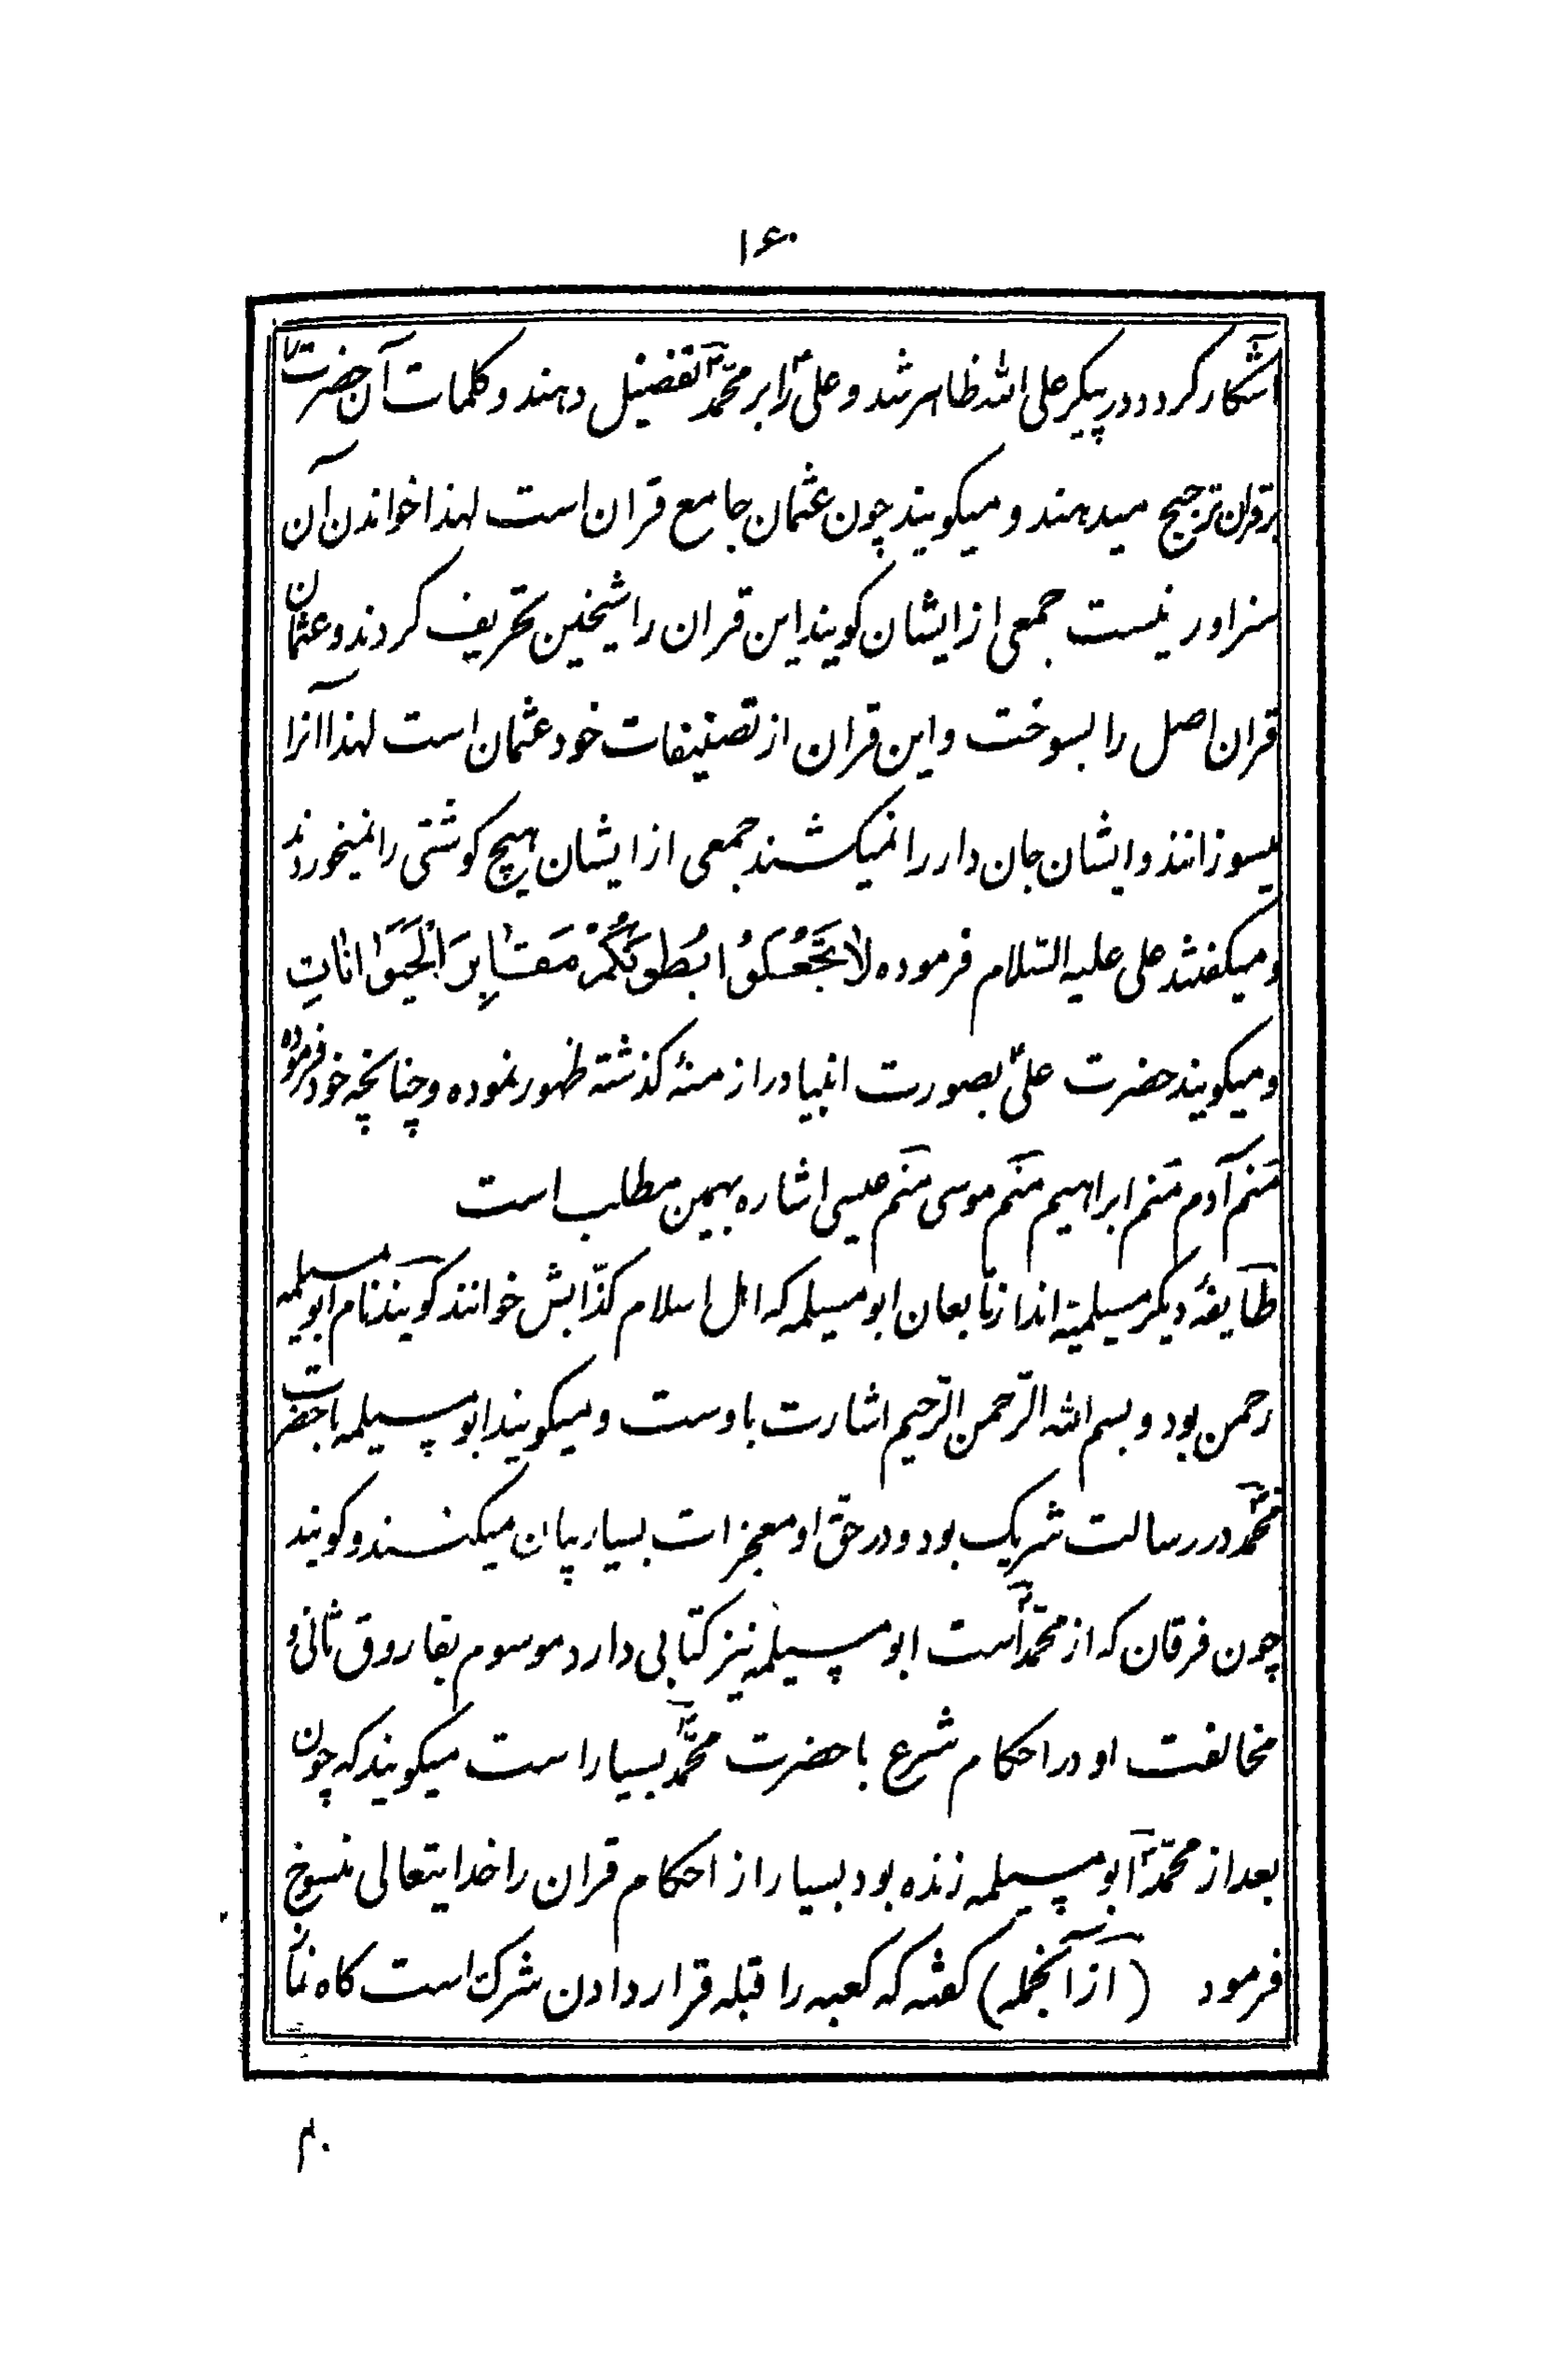 ۱۶۰
آشکار کرد و در پیکر علی الله ظاهر شد و علی را بر محمد تفضیل دهند و کلمات آن حضرت را
بر قرآن ترجیح میدهند و میکویند چون عثمان جامع قران است لهذا خواندن آن
سزاور نیست جمعی از ایشان کویند این قران را شیخین تحریف کردند و عثمان
قران اصل را بسوخت و این قران از تصنیفات خود عثمان است لهذا آنرا
میسوزانند و ایشان جان دار را نمیکشند جمعی از ایشان هیچ کوشتی را نمیخورند
و میکفتند علی علیه السّلام فرموده لَا تَجْعَلُوُا بُطُونَكُمْ مَقَابِرَ الْحَيَوٰانٰاتِ
و میکویند حضرت علیؑ بصورت انبیا در ازمنهٔ کذشته ظهور نموده و چنانچه خود فرموده
منم آدم منم ابراهیم منم موسی منم عیسی اشاره بهمین مطلب است
طایفهٔ دیکر مسیلمیّه اند از تابعان ابو مسیلمه که اهل اسلام کذّابش خوانند کویند نام ابو مسیلمه
رحمن بود و بسم الله الرّحمن الرّحیم اشارت باوست و میکویند ابو مسیلمه با حضرت
محمّد در رسالت شریک بود و در حقّ او معجزات بسیار بیان میکنند و کویند
چون فرقان که از محمّد است ابو مسیلمه نیز کتابی دارد موسوم بفاروق ثانی و
مخالفت او در احکام شرع با حضرت محمّد بسیار است میکویند که چون
بعد از محمّد ابو مسیلمه زنده بود بسیار از احکام قران را خدایتعالی منسوخ
فرمود (از آنجمله) کفته که کعبه را قبله قرار دادن شرک است کاه نماز